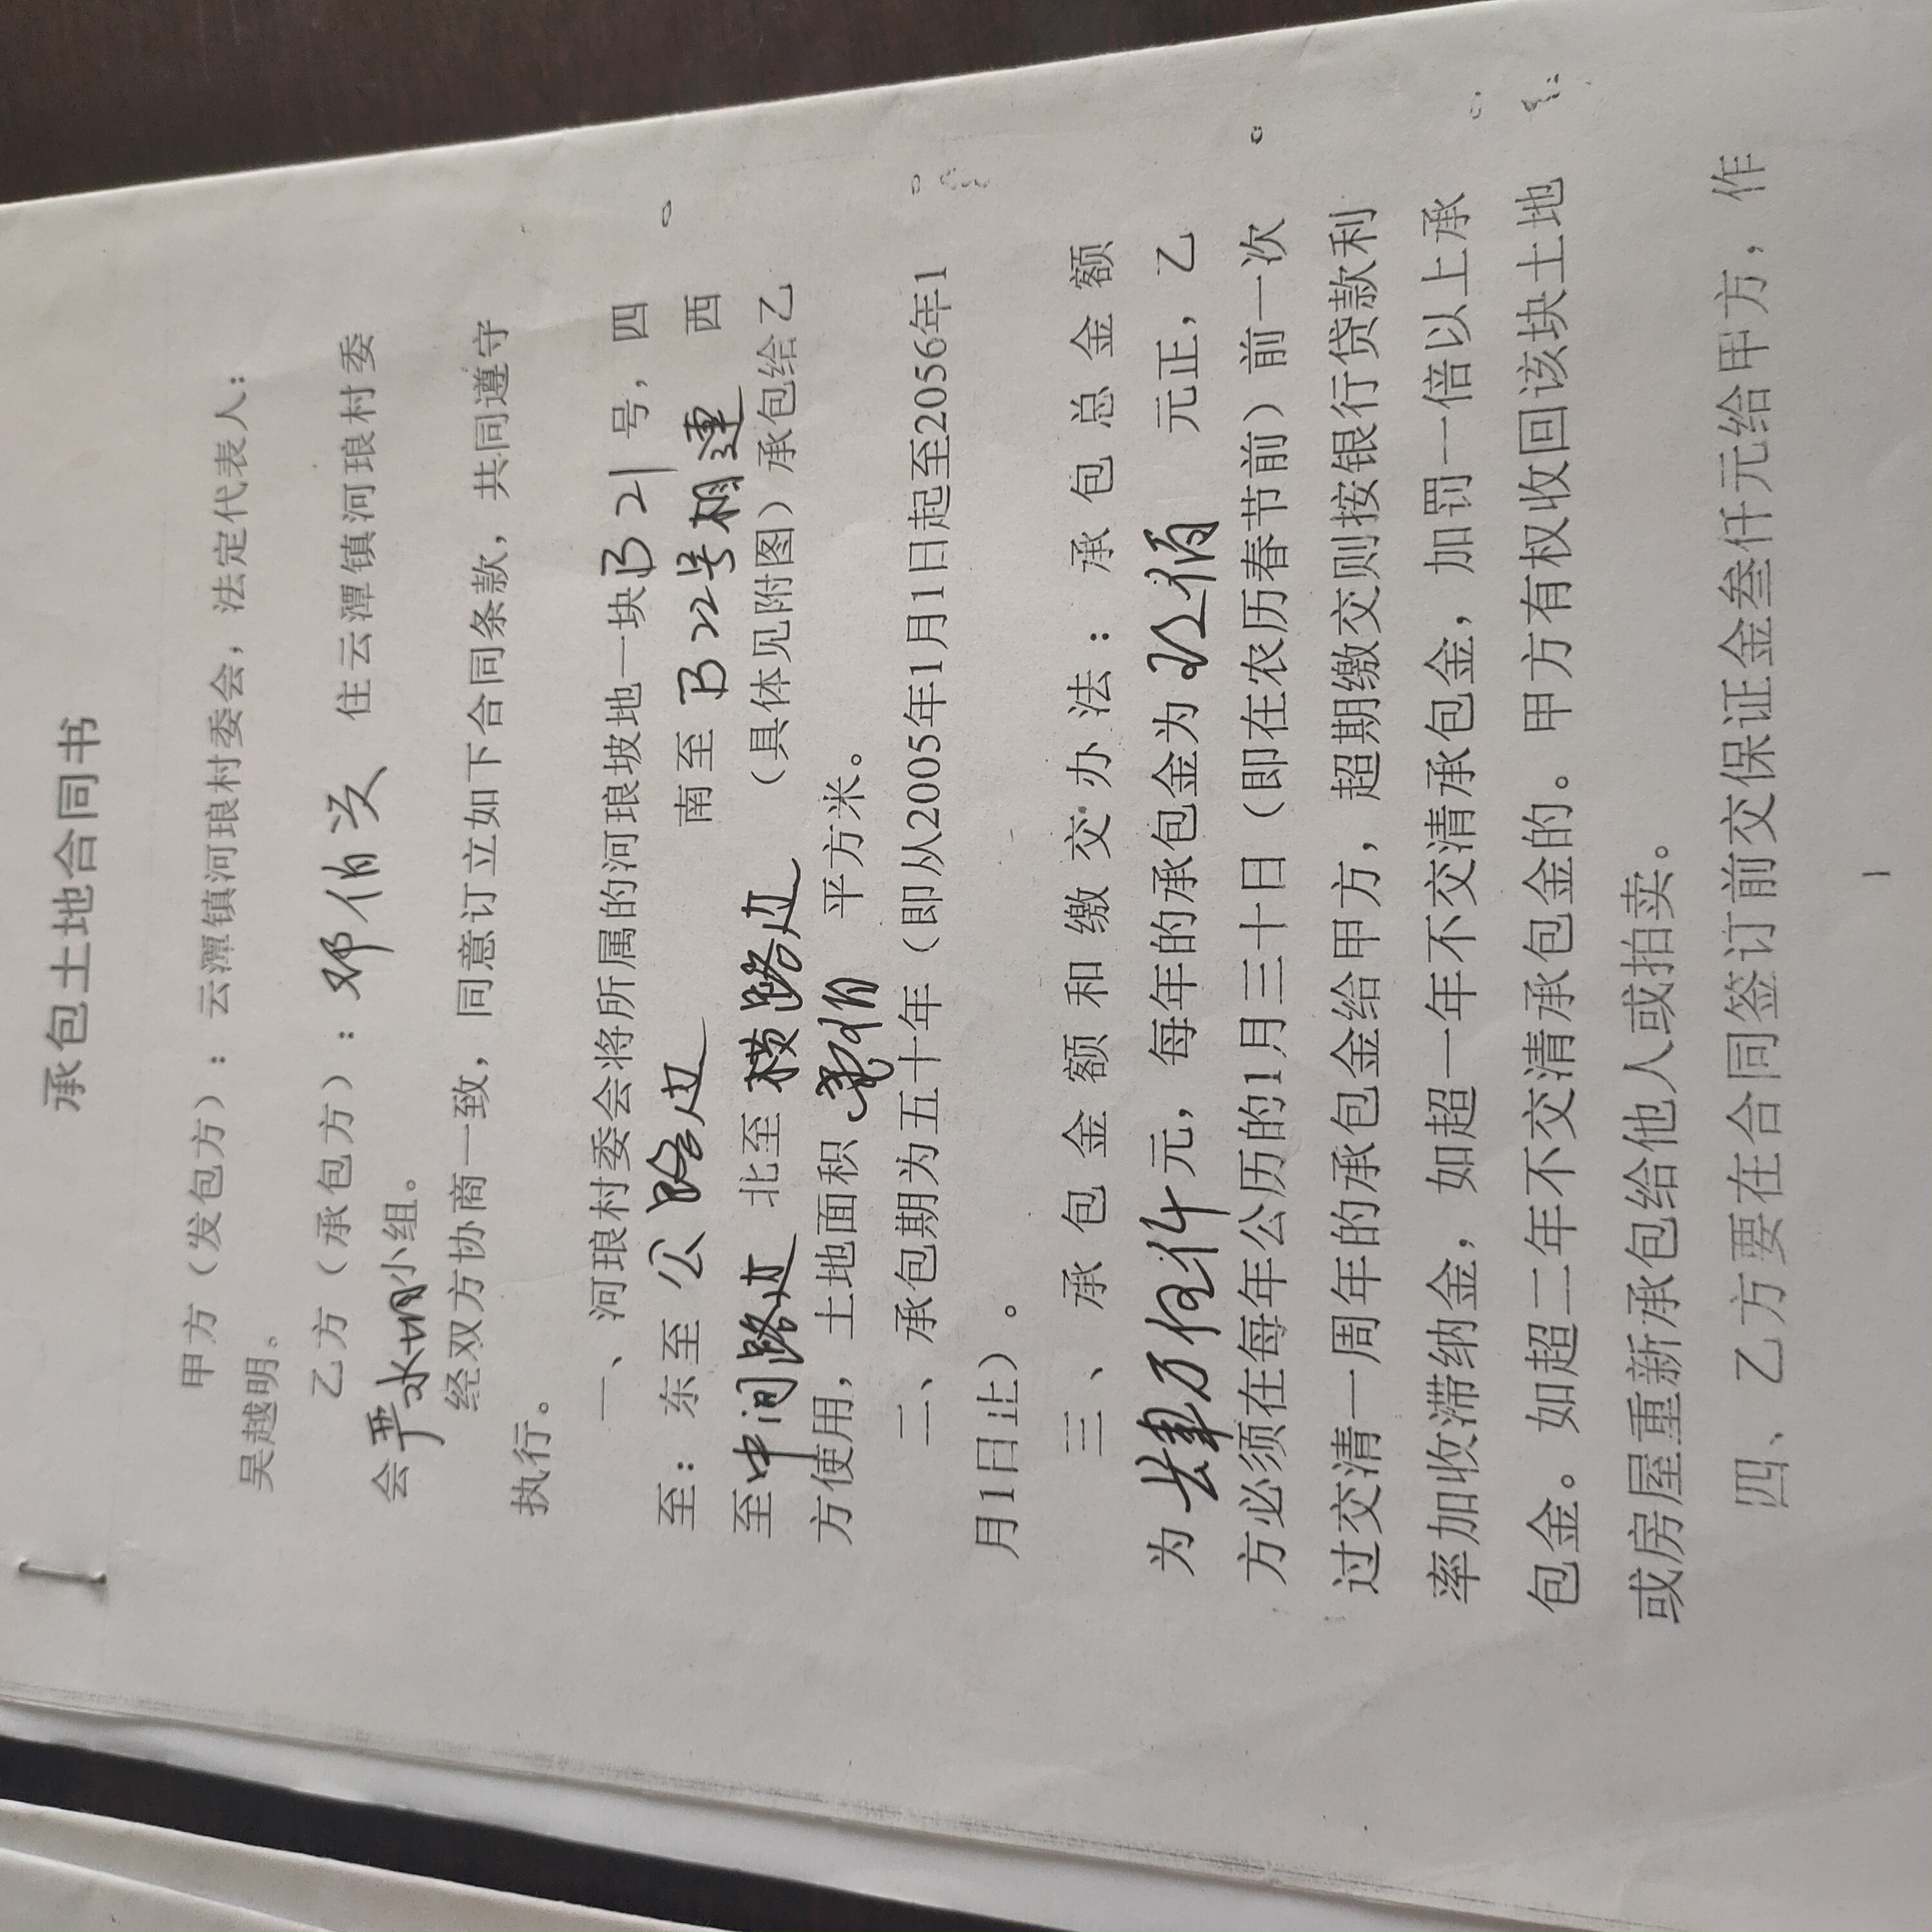 承包土地合同书
甲方（发包方）：云潭镇河琅村委会，法定代表人：
吴越明。
乙方（承包方）：邓伯 住云潭镇河琅村委
会严水 小组。
经双方协商一致，同意订立如下合同条款，共同遵守
执行。
一、河琅村委会将所属的河琅坡地一块B21号，四
至：东至公路边 南至B22号相連 西
至中间路边 北至横路边 （具体见附图）承包给乙
方使用，土地面积 佰 平方米。
二、承包期为五十年（即从2005年1月1日起至2056年1
月1日止）。
三、承包金额和缴交办法：承包总金额
为 万伍仟元，每年的承包金为 佰 元正，乙
方必须在每年公历的1月三十日（即在农历春节前）前一次
过交清一周年的承包金给甲方，超期缴交则按银行贷款利
率加收滞纳金，如超一年不交清承包金，加罚一倍以上承
包金。如超二年不交清承包金的。甲方有权收回该块土地
或房屋重新承包给他人或拍卖。
四、乙方要在合同签订前交保证金叁仟元给甲方，作
1